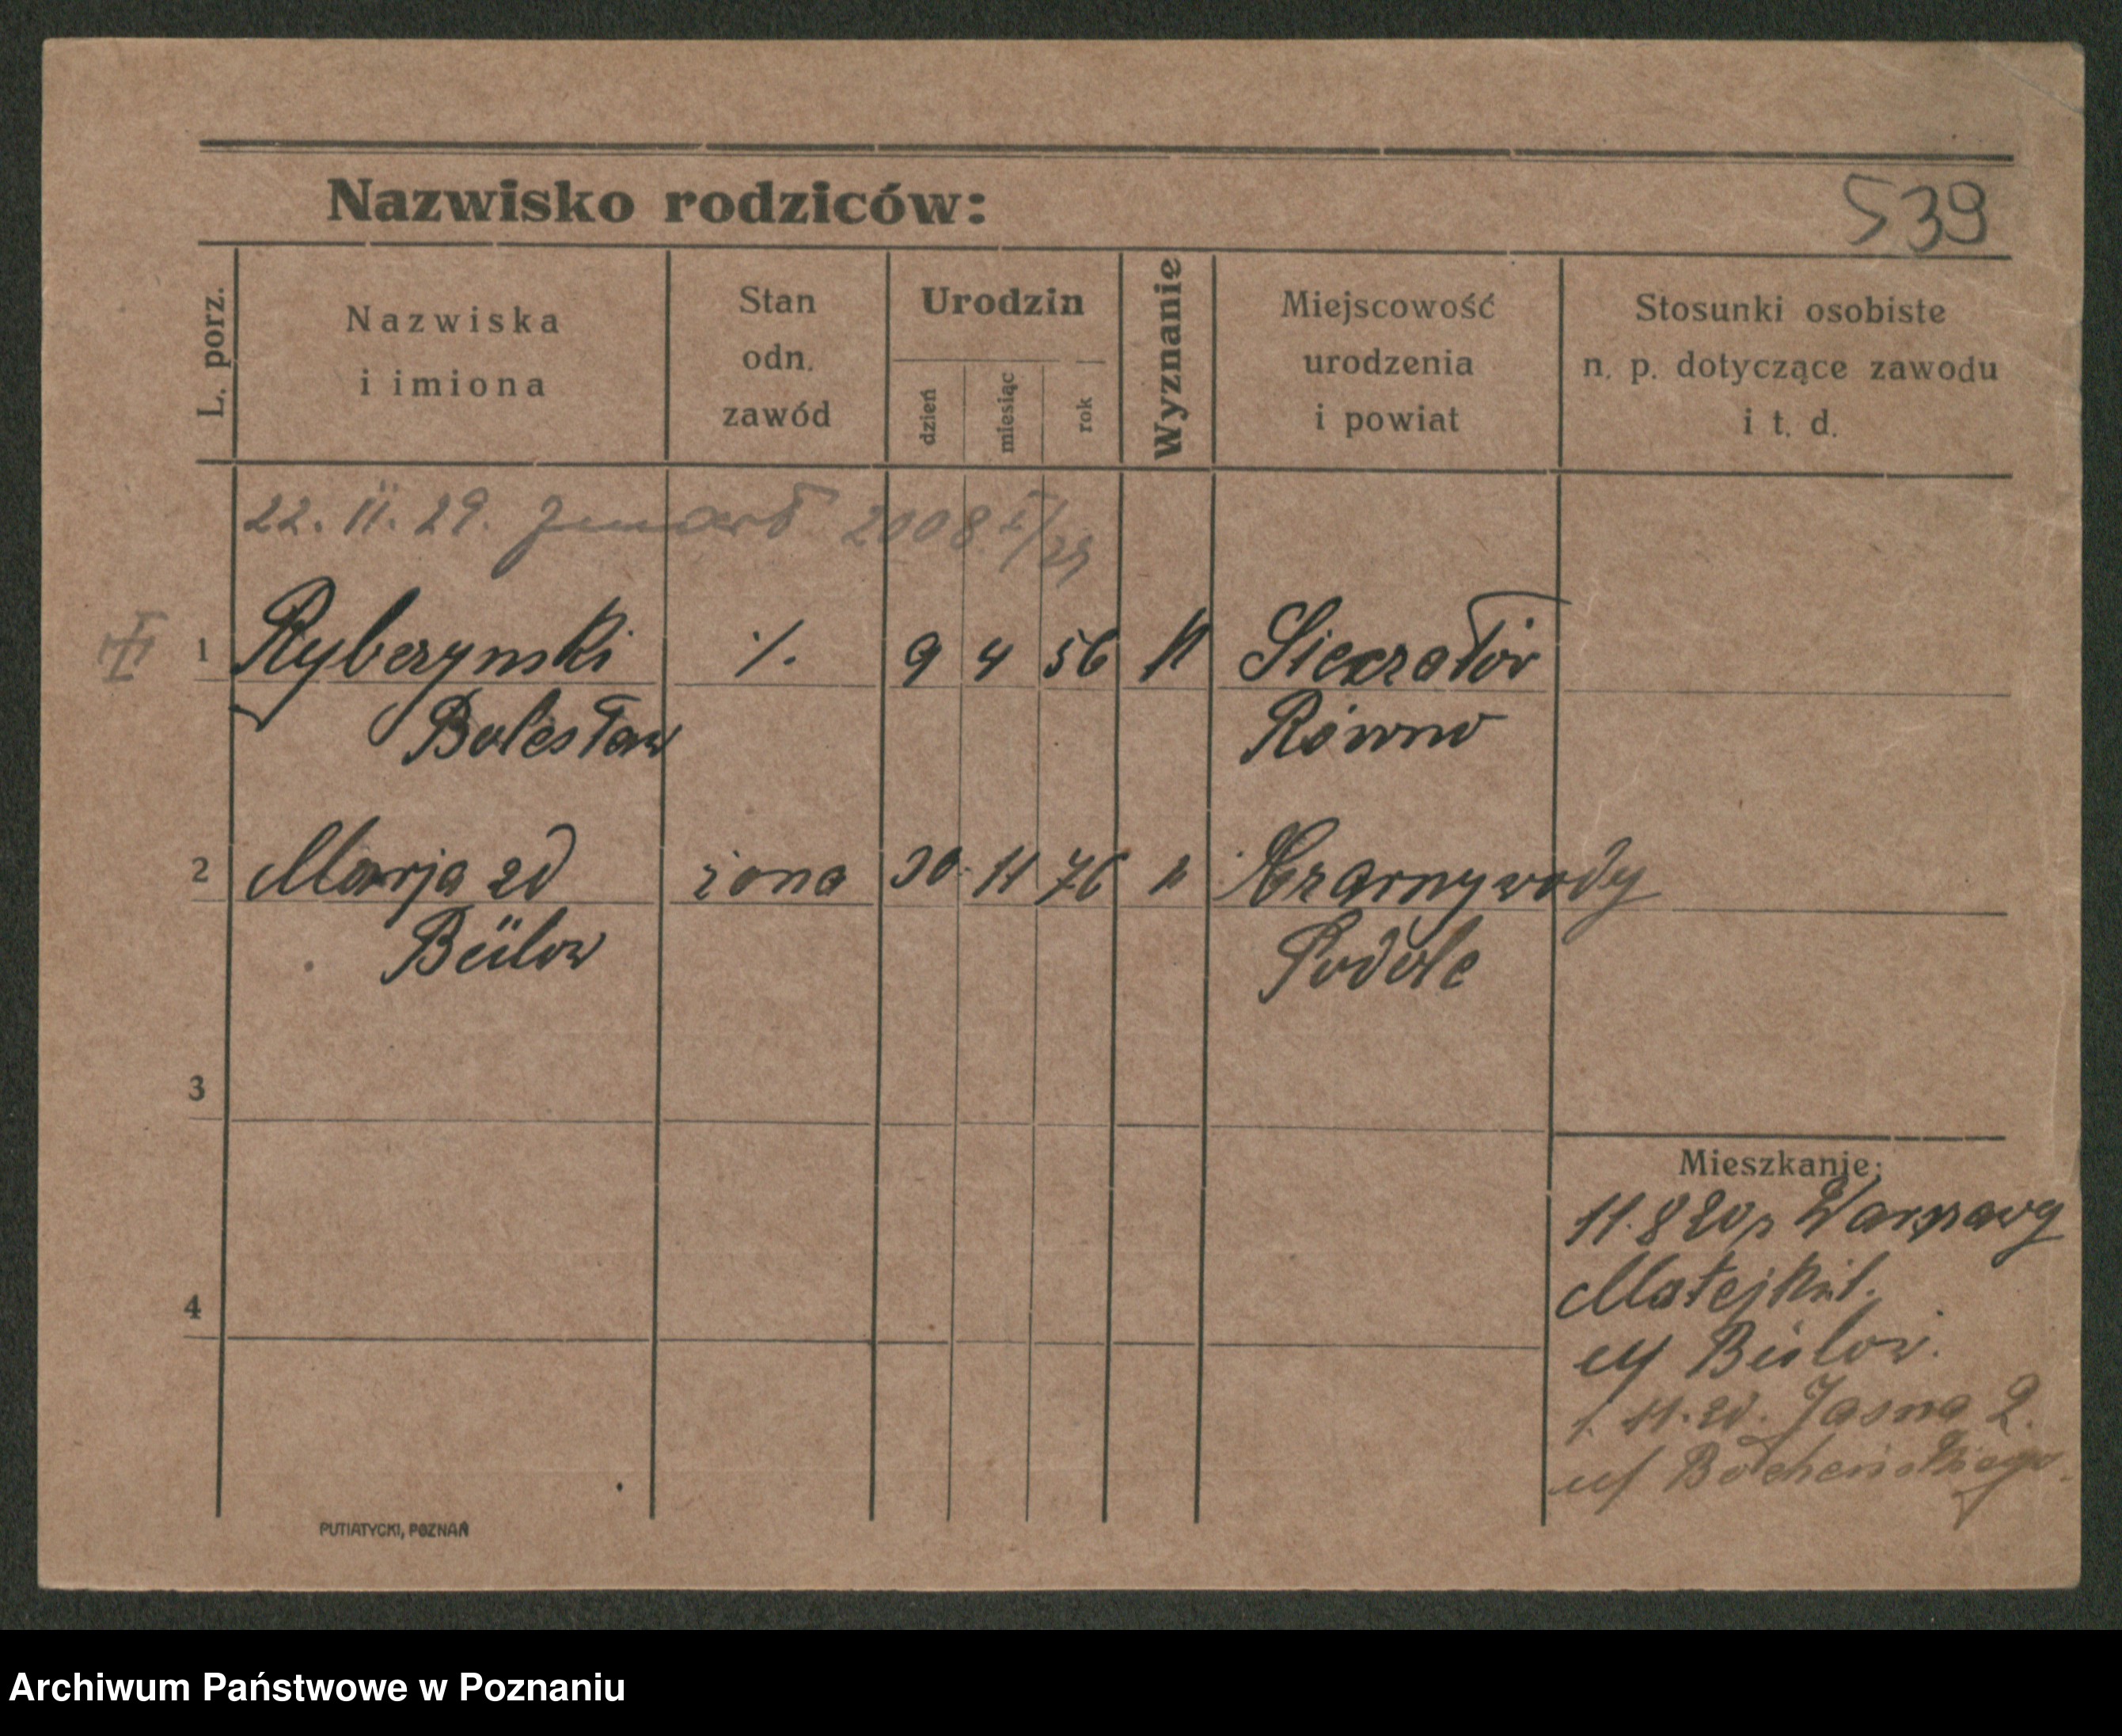 539
Nazwisko rodziców:
L. porz.
Nazwiska
i imiona
Stan
odn.
zawód
Urodzin
dzień
miesiąc
rok
Wyznanie
Miejscowość
urodzenia
i powiat
Stosunki osobiste
n. p. dotyczące zawodu
i t. d.
22. II. 29. zmarł 2008 I/29
1 Ryberzynski ·/. 9 4 56 k
Bolesław Równo
2 Marja zd żona 30 11 76 k Czarnywody
Bülow Podole
3
4
Mieszkanie:
11.8 20 z Warszawy
Matejki 1.
u/ Bülow.
1. 11. 20. Jasna 2.
u/ Bocheńskiego.
PUTIATYCKI, POZNAŃ
Archiwum Państwowe w Poznaniu